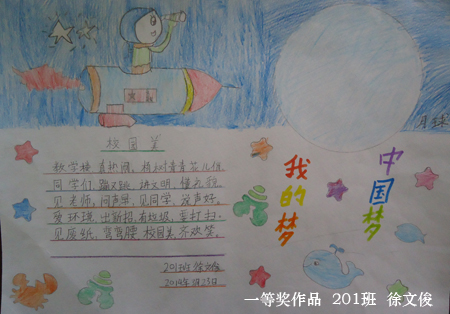 月球
校园美
教学楼,真热闹,精训青青花儿俏
同学们,蹦又跳,讲文明,懂礼貌.
见老师,问声早,见同学,说声好.
爱环境,出新招,有垃圾,要打扫.
见废纸,弯弯腰,校园美,齐欢笑.
201班 徐文俊
我的梦
中国梦
一等奖作品 201班 徐文俊